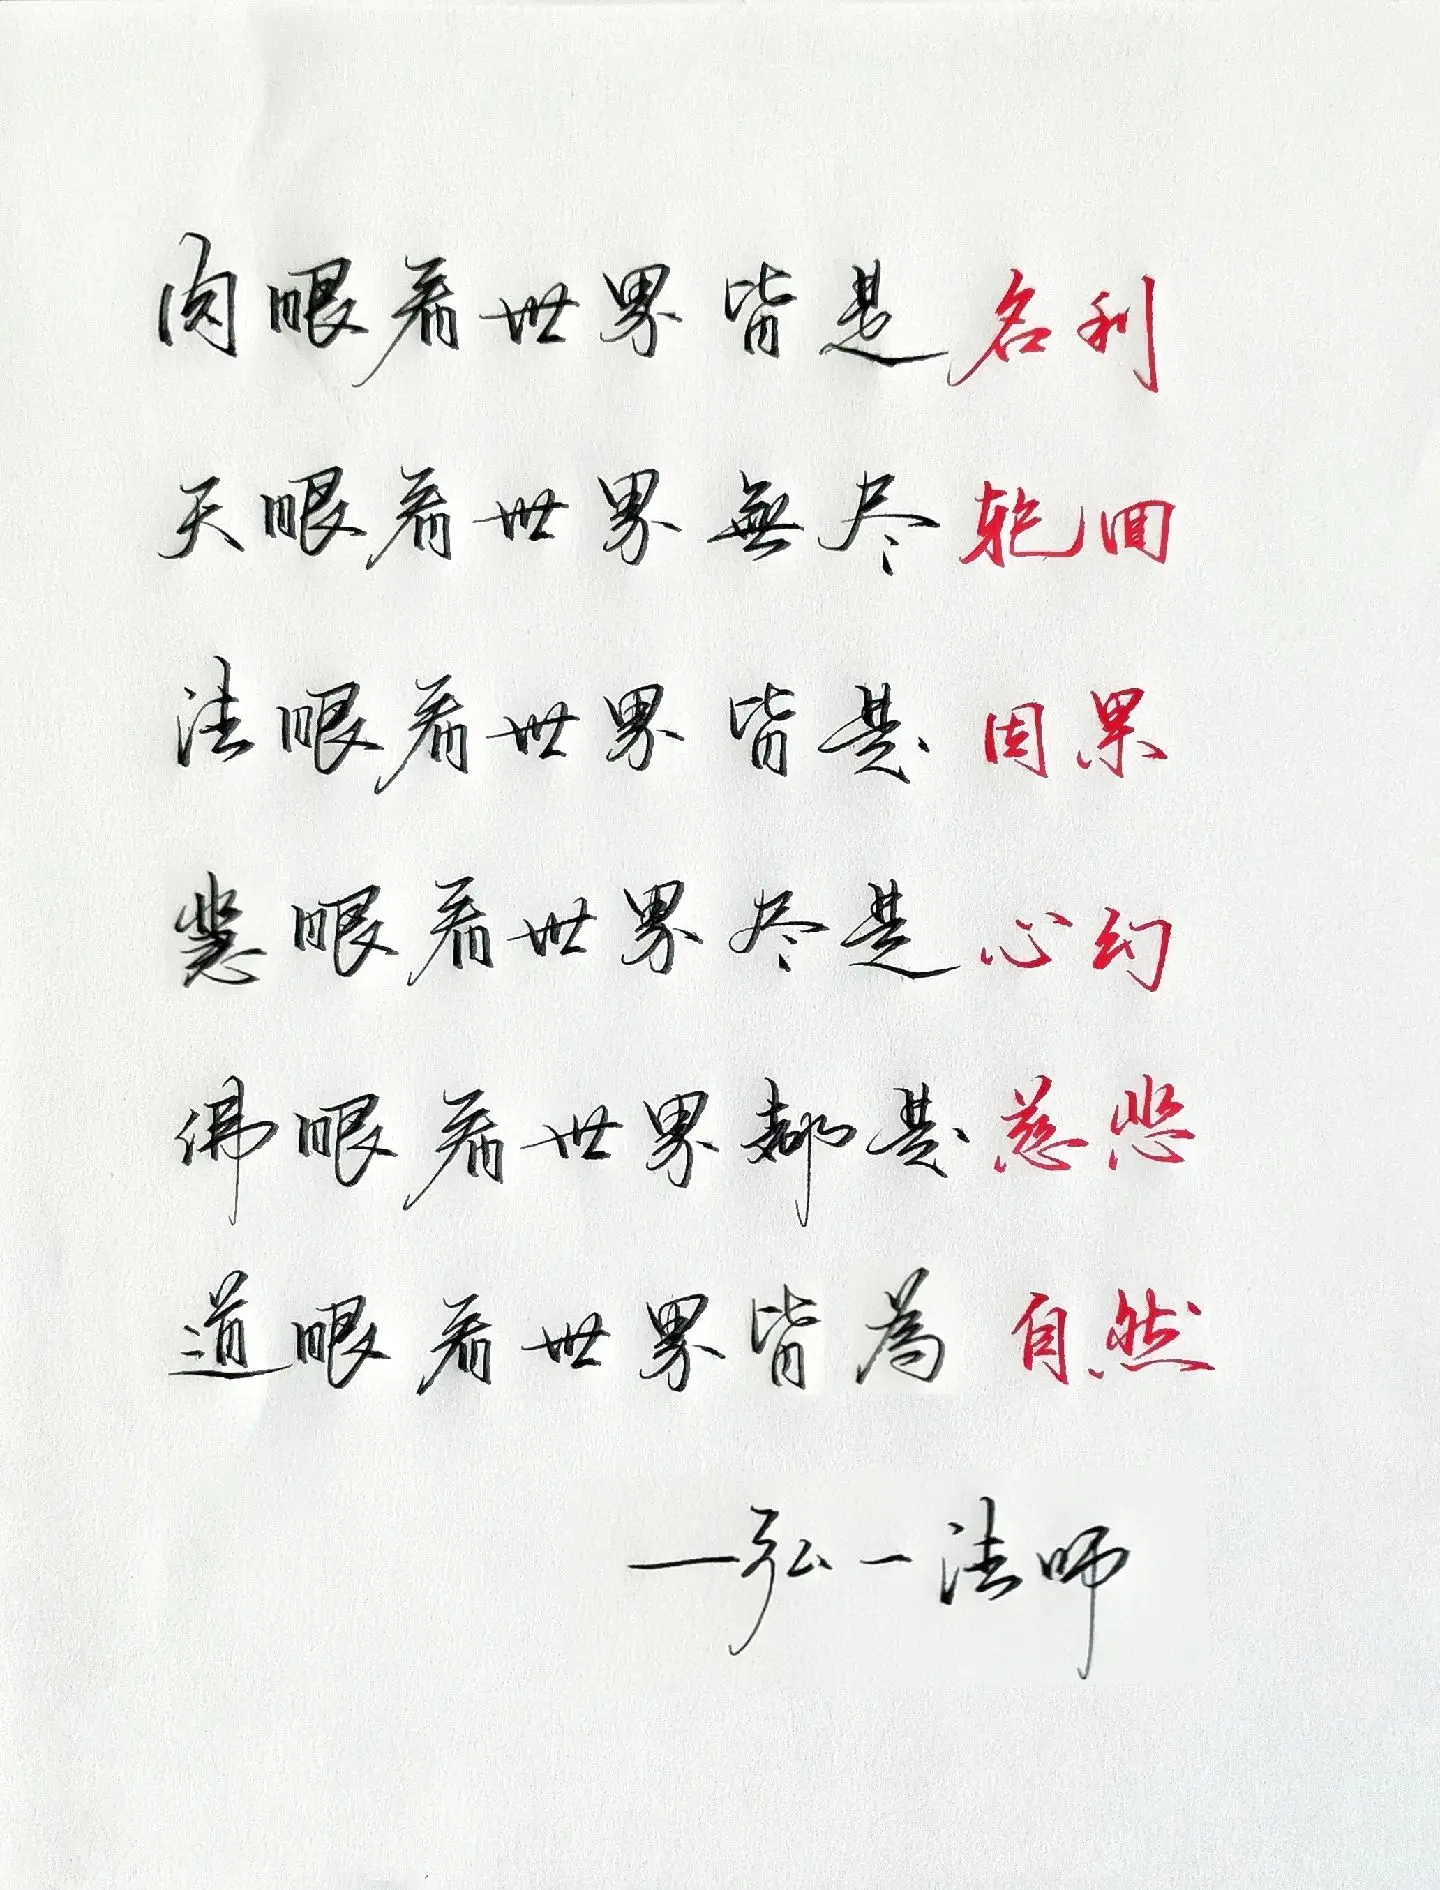 肉眼看世界皆是名利
天眼看世界無尽轮回
法眼看世界皆是因果
慧眼看世界尽是心幻
佛眼看世界都是慈悲
道眼看世界皆為自然
—弘一法师